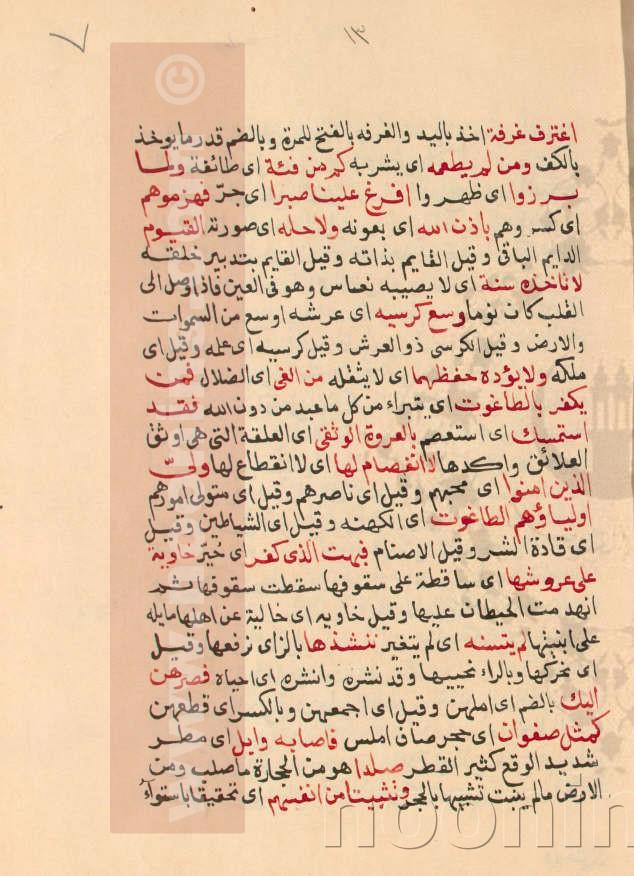 ١٣
اغترف غرفة اخذ باليد والغرفه بالفتح للمرة وبالضم قدر ما يوخذ
بالكف ومن لم يطعمه اى يشربه كم من فئة اى طائفة ولما
برزوا اى ظهروا افرغ علينا صبرا اى جرّ فهزموهم
اى كسروهم باذن الله اى بعونه ولاحله اى صورته القيوم
الدايم الباقى وقيل القايم بذاته وقيل القايم بتدبير خلقه
لا تاخذه سنة اى لا يصيبه نعاس وهو فى العين فاذا وصل الى
القلب كان نوما وسع كرسيه اى عرشه اوسع من السموات
والارض وقيل الكرسى ذو العرش وقيل كرسيه اى علمه وقيل اى
ملكه ولا يؤده حفظهما اى لا يثقله من الغى اى الضلال فمن
يكفر بالطاغوت اى يتبراء من كل ما عبد من دون الله فقد
استمسك اى استعصم بالعروة الوثقى اى العلقة التى هى اوثق
العلائق واكدها لا انفصام لها اى لا انقطاع لها ولىّ
الذين امنوا اى محبهم وقيل اى ناصرهم وقيل اى متولى امورهم
اولياؤهم الطاغوت اى الكهنه وقيل اى الشياطين وقيل
اى قادة الشر وقيل الاصنام فبهت الذى كفر اى خيّر خاوية
على عروشها اى ساقطة على سقوفها سقطت سقوفها ثم
انهدمت الحيطان عليها وقيل خاويه اى خالية عن اهلها مايله
على ابنيتها لم يتسنه اى لم يتغير ننشذها بالزاى نرفعها وقيل
اى نحركها وبالراء نحييها وقد نشره وانشره اى احياه فصرهن
اليك بالضم اى املهن وقيل اى اجمعهن وبالكسر اى قطعهن
كمثل صفوان اى حجر صان املس فاصابه وابل اى مطر
شديد الوقع كثير القطر صلدا هو من الحجارة ما صلب ومن
الارض مالم ينبت تشبيها بالحجر وتثبيتا من انفسهم اى تحقيقا باستوآء
noonin